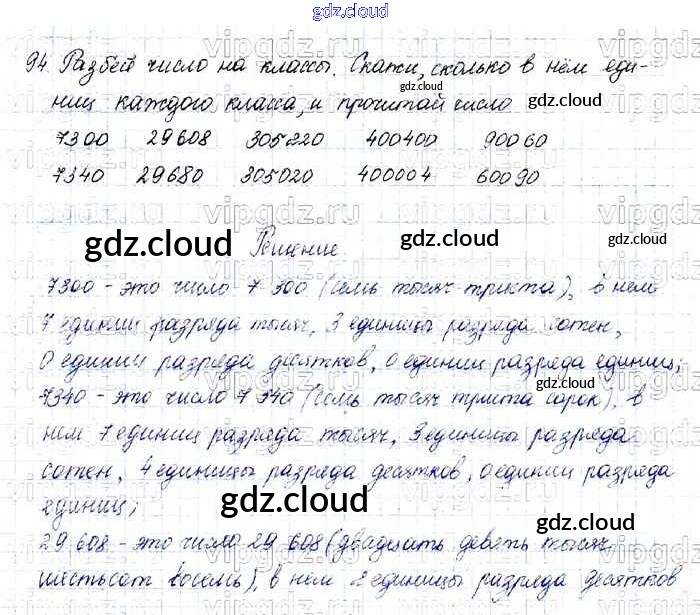 gdz.cloud
94. Разбей число на классы. Скажи, сколько в нём еди-
ниц каждого класса, и прочитай число
7300 29608 305220 400400 90060
7340 29680 305020 400004 60090
Решение.
7300 - это число 7 300 (семь тысяч триста), в нем
7 единиц разряда тысяч, 3 единицы разряда сотен,
0 единиц разряда десятков, 0 единиц разряда единиц;
7340 - это число 7 340 (семь тысяч триста сорок), в
нем 7 единиц разряда тысяч, 3 единицы разряда
сотен, 4 единицы разряда десятков, 0 единиц разряда
единиц;
29 608 - это число 29 608 (двадцать девять тысяч
шестьсот восемь), в нем 2 единицы разряда десятков
gdz.cloud
gdz.cloud
gdz.cloud
gdz.cloud
gdz.cloud
gdz.cloud
gdz.cloud
gdz.cloud
vipgdz.ru